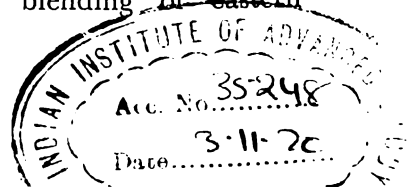 blending of eastern
INDIAN INSTITUTE OF ADVANCED
Acc. No. 35248
Date 3.11.70